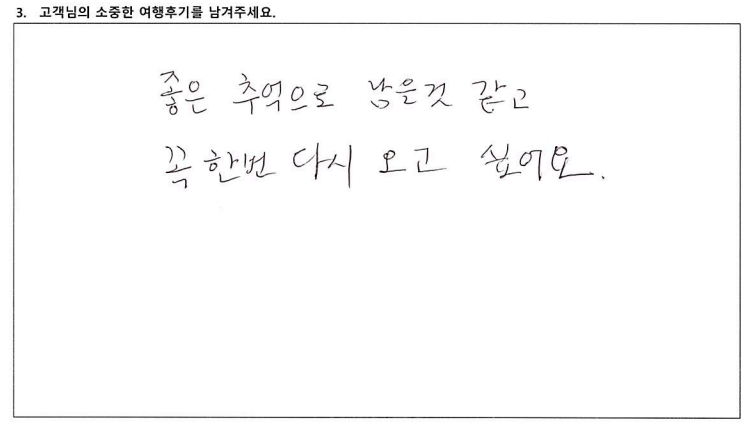 3. 고객님의 소중한 여행후기를 남겨주세요.
좋은 추억으로 남을것 같고
꼭 한번 다시 오고 싶어요.